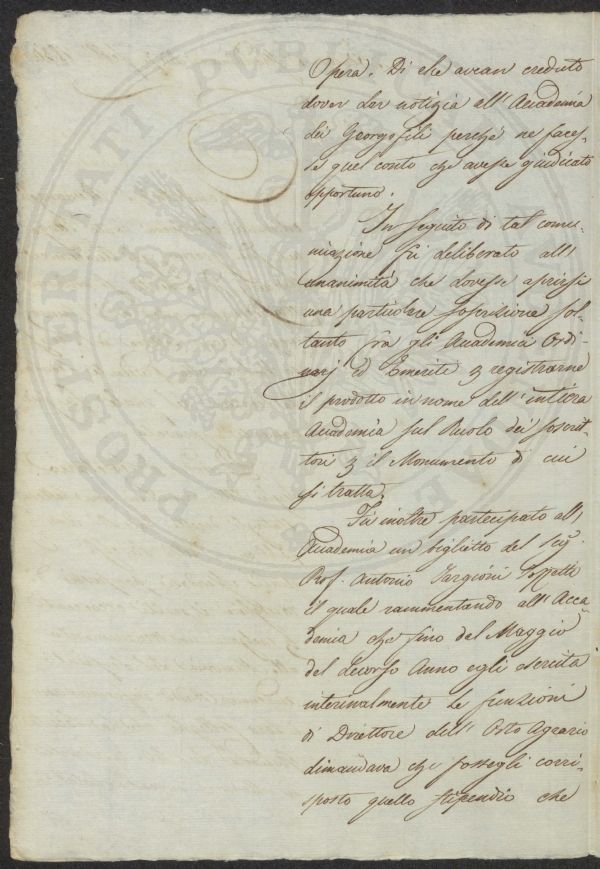 Opera. Di che avean creduto
dover dar notizia all' Accademia
dei Georgofili perchè ne faces-
se quel conto che avesse giudicato
opportuno.
In seguito di tal comu-
nicazione fù deliberato all'
unanimità che dovesse aprirsi
una particolare soscrizione sol-
tanto frà gli Accademici Ordi-
narj ed Emeriti registrarne
il prodotto in nome dell' intiera
Accademia sul Ruolo dei soscrit-
tori il Monumento di cui
si tratta.
Fù inoltre partecipato all'
Accademia un biglietto del Sig.
Prof. Antonio Targioni Tozzetti
il quale rammentando all' Acca-
demia che fino dal Maggio
del decorso Anno egli esercita
interinalmente le funzioni
di Direttore dell' Orto Agrario
dimandava che fossegli corri-
sposto quello stipendio che
PROSPERITATI PUBLICAE